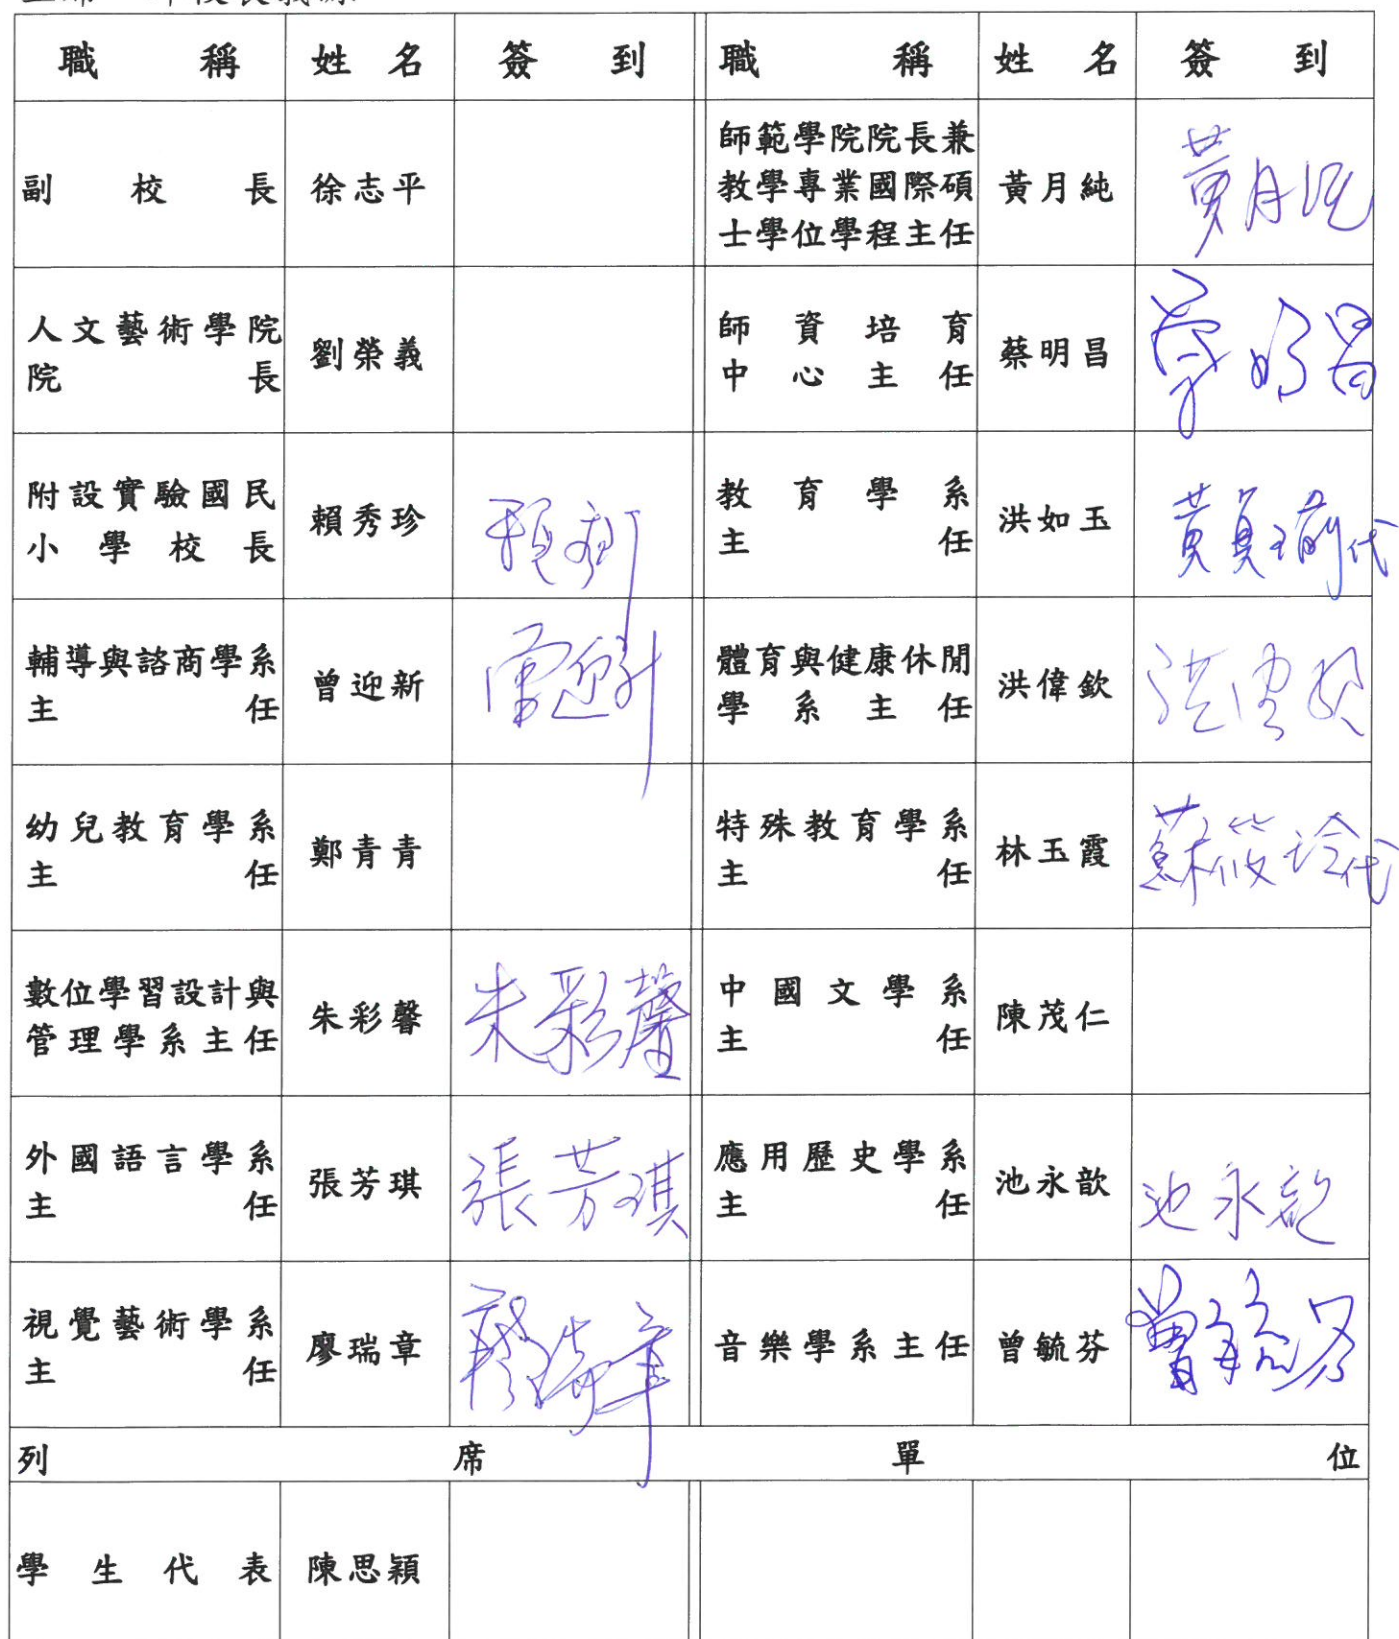 職稱 姓名 簽到 職稱 姓名 簽到
副校長 徐志平
師範學院院長兼
教學專業國際碩
士學位學程主任
黃月純 黃月純
人文藝術學院
院長
劉榮義
師資培育
中心主任
蔡明昌 蔡明昌
附設實驗國民
小學校長
賴秀珍
教育學系
主任
洪如玉 黃真瑜代
輔導與諮商學系
主任
曾迎新 曾迎新
體育與健康休閒
學系主任
洪偉欽 洪偉欽
幼兒教育學系
主任
鄭青青
特殊教育學系
主任
林玉霞 蘇筱玲代
數位學習設計與
管理學系主任
朱彩馨 朱彩馨
中國文學系
主任
陳茂仁
外國語言學系
主任
張芳琪 張芳琪
應用歷史學系
主任
池永歆 池永歆
視覺藝術學系
主任
廖瑞章 廖瑞章
音樂學系主任 曾毓芬 曾毓芬
列席單位
學生代表 陳思穎